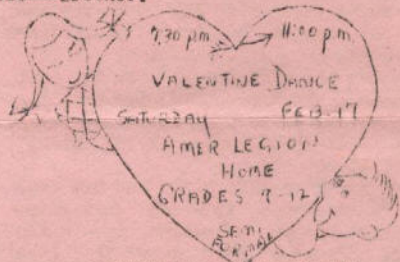 7:30 pm → 11:00 p.m.
VALENTINE DANCE
SATURDAY FEB. 17
AMER LEGION
HOME
GRADES 9-12
SEMI
FORMAL